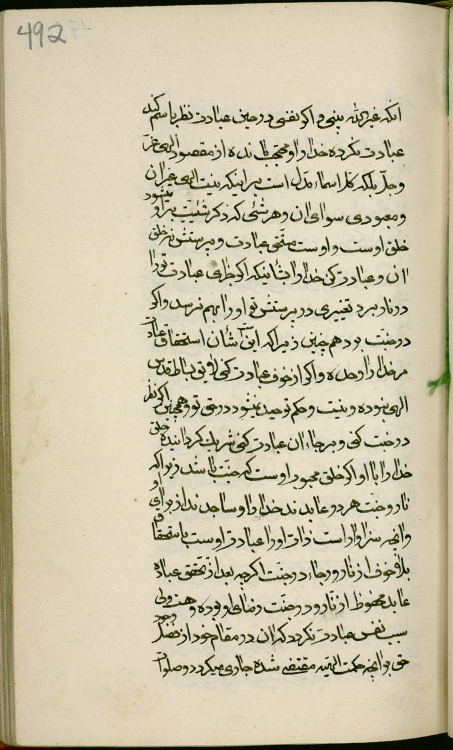 492
انکه غیر الله بینی و اکر نفسی در حین عبادت نظر باسم کند
عبادت نکرده خدا را و محتجب مانده از مقصود الهی عز
و جل بلکه کل اسماء مدل است بر اینکه نیست الهی غیر ان
و معبودی سوای ان و هر شئی که ذکر شئیت بر او میشود
خلق اوست و اوست مستحق عبادت و پرستش نه خلق
ان و عبادت کن خدا را بشأنیکه اکر جزای عبادت تو را
در نار برد تغییری در پرستش تو او را بهم نرسد و اکر
در جنت برد هم چنین زیرا که این است شأن استحقاق عبادت
مر خدا را وحده و اکر از خوف عبادت کنی لایق بساط قدس
الهی نبوده و نیست و حکم توحید نمیشود در حق تو و همچنین اکر نظر
در جنت کنی و برجاء ان عبادت کنی شریک کردانیده خلق
خدا را با او اکرچه خلق محبوب اوست که جنت باشد زیرا که
نار و جنت هر دو عابدند خدا را و ساجدند از برای او
و انچه سزاوار است ذات او را عبادت اوست باستحقاق
بلا خوف از نار و رجاء در جنت اکرچه بعد از تحقق عبادت
عابد محفوظ از نار و در جنت رضای او بوده و هست ولی
سبب نفس عبادت نکردد که ان در مقام خود از فضل وجود
حق بر انچه حکمت الهیه مقتضی شده جاری میکردد و صلوات